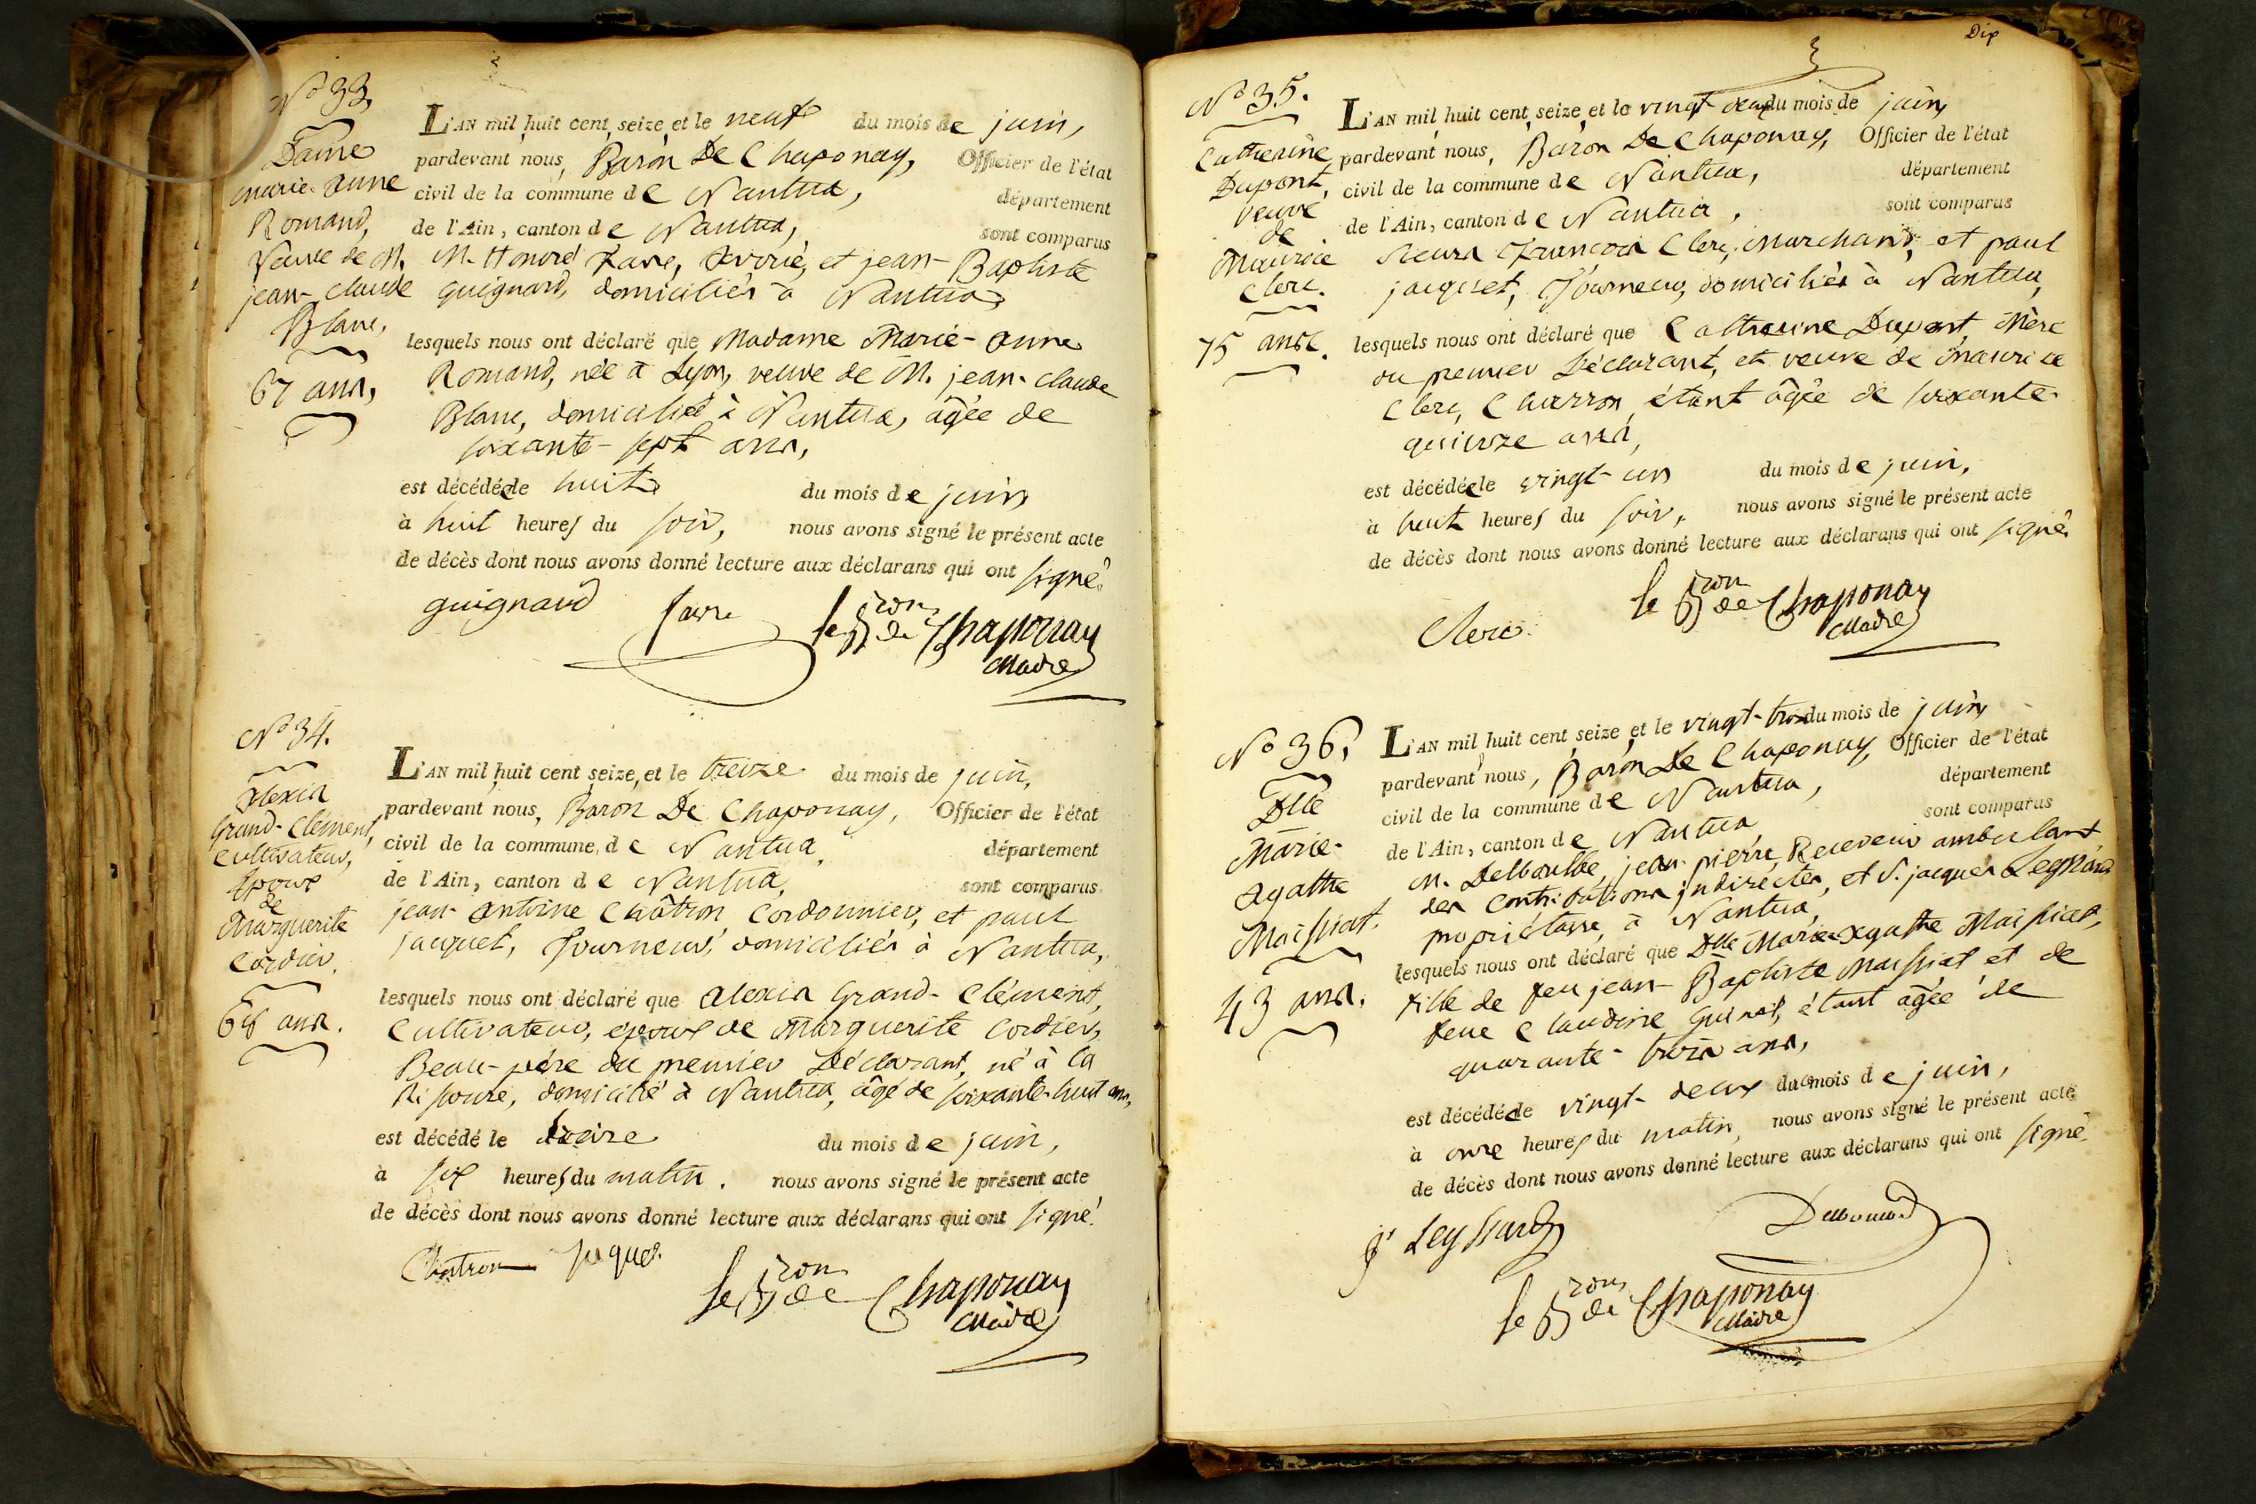 N° 33.
Dame
marie-anne
Romand,
veuve de M.
jean-claude
Blanc.
67 ans,
L'AN mil huit cent seize, et le neuf du mois de juin,
pardevant nous, Baron De Chaponay, Officier de l'état
civil de la commune de Nantua, département
de l'Ain, canton de Nantua, sont comparus
M. Honoré Favre, Avoué, et jean-Baptiste
guignard, domiciliés à Nantua,
lesquels nous ont déclaré que Madame Marie-anne
Romand, née à Lyon, veuve de M. jean-claude
Blanc, domiciliée à Nantua, âgée de
soixante-sept ans,
est décédée le huit du mois de juin
à huit heures du soir, nous avons signé le présent acte
de décès dont nous avons donné lecture aux déclarans qui ont signé.
guignard favre le Bron de Chaponay
Maire
N° 34.
Alexis
Grand-Clément,
cultivateur,
époux
de
Marguerite
Cordier.
68 ans.
L'AN mil huit cent seize, et le treize du mois de juin,
pardevant nous, Baron De Chaponay, Officier de l'état
civil de la commune de Nantua, département
de l'Ain, canton de Nantua, sont comparus
jean-antoine Châtron cordonnier, et paul
jacquet, Tourneur, domiciliés à Nantua,
lesquels nous ont déclaré que Alexis Grand-Clément,
Cultivateur, époux de Marguerite Cordier,
Beau-père du premier Déclarant, né à la
Rixouse, domicilié à Nantua, âgé de soixante-huit ans,
est décédé le treize du mois de juin,
à six heures du matin. nous avons signé le présent acte
de décès dont nous avons donné lecture aux déclarans qui ont signé.
Chatron Jaquet
le Bron de Chaponay
Maire
Dix
N° 35.
Catherine
Dupont,
veuve
de
Maurice
Clerc.
75 ans.
L'AN mil huit cent seize, et le vingt-deux du mois de juin,
pardevant nous, Baron De Chaponay, Officier de l'état
civil de la commune de Nantua, département
de l'Ain, canton de Nantua, sont comparus
Sieurs François Clerc, Marchand, et paul
jacquet, Tourneur, domiciliés à Nantua,
lesquels nous ont déclaré que Catherine Dupont, Mère
du premier Déclarant, et veuve de Maurice
Clerc, Charron, étant âgée de soixante-
quinze ans,
est décédée le vingt-un du mois de juin,
à huit heures du soir, nous avons signé le présent acte
de décès dont nous avons donné lecture aux déclarans qui ont signé.
Clerc le Bron de Chaponay
Maire
N° 36.
Dlle
Marie-
Agathe
Maissiat.
43 ans.
L'AN mil huit cent seize, et le vingt-trois du mois de juin,
pardevant nous, Baron De Chaponay, Officier de l'état
civil de la commune de Nantua, département
de l'Ain, canton de Nantua, sont comparus
M. jean-pierre, Receveur ambulant
des contributions indirectes, et S. jacques Leyssard
propriétaire, à Nantua,
lesquels nous ont déclaré que Dlle Marie-Agathe Maissiat,
fille de feu jean-Baptiste Maissiat et de
feue Claudine Guinet, étant âgée de
quarante-trois ans,
est décédée le vingt-deux du mois de juin,
à onze heures du matin, nous avons signé le présent acte
de décès dont nous avons donné lecture aux déclarans qui ont signé.
Jq Leyssard
le Bron de Chaponay
Maire